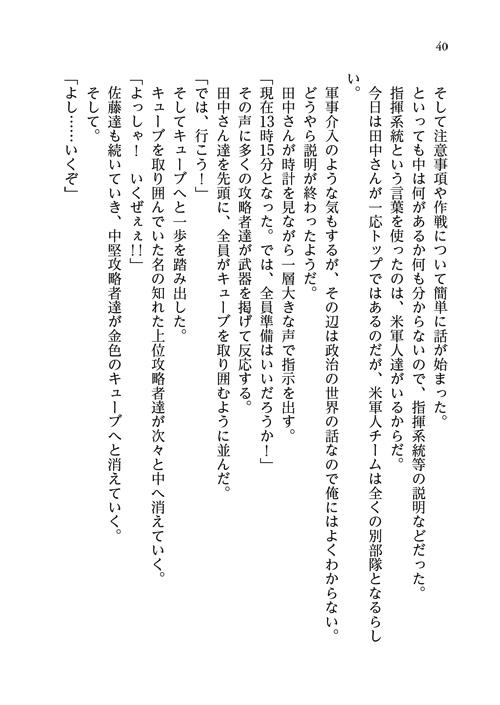 40
そして注意事項や作戦について簡単に話が始まった。
といっても中は何があるか何も分からないので、指揮系統等の説明などだった。
指揮系統という言葉を使ったのは、米軍人達がいるからだ。
今日は田中さんが一応トップではあるのだが、米軍人チームは全くの別部隊となるらし
い。
軍事介入のような気もするが、その辺は政治の世界の話なので俺にはよくわからない。
どうやら説明が終わったようだ。
田中さんが時計を見ながら一層大きな声で指示を出す。
「現在13時15分となった。では、全員準備はいいだろうか！」
その声に多くの攻略者達が武器を掲げて反応する。
田中さん達を先頭に、全員がキューブを取り囲むように並んだ。
「では、行こう！」
そしてキューブへと一歩を踏み出した。
キューブを取り囲んでいた名の知れた上位攻略者達が次々と中へ消えていく。
「よっしゃ！　いくぜぇぇ!!」
佐藤達も続いていき、中堅攻略者達が金色のキューブへと消えていく。
そして。
「よし……いくぞ」